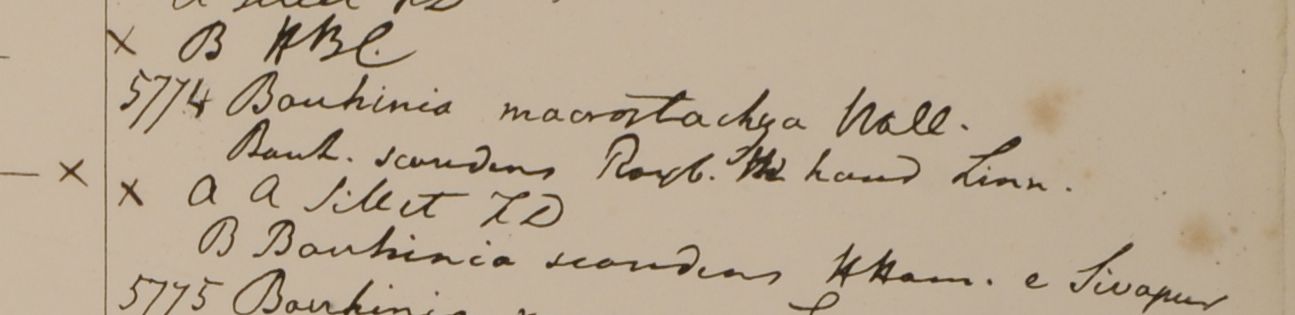 A Sillet FD
× B HBC.
5774 Bauhinia macrostachya Wall.
Bauh. scandens Roxb. haud Linn.
× × a A Sillet FD
B Bauhinia scandens HHam. e Sivapur
5775 Bauhinia